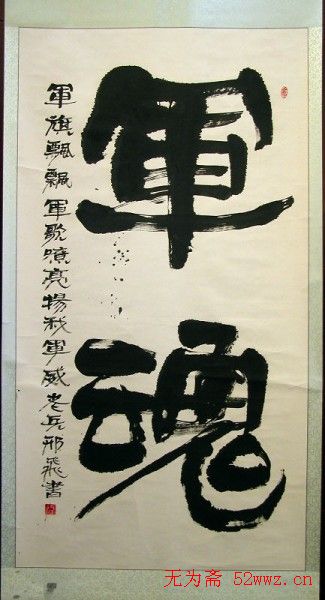 軍魂
軍旗飄飄軍歌嘹亮揚我軍威老兵邢飛書
无为斋 52wwz.cn